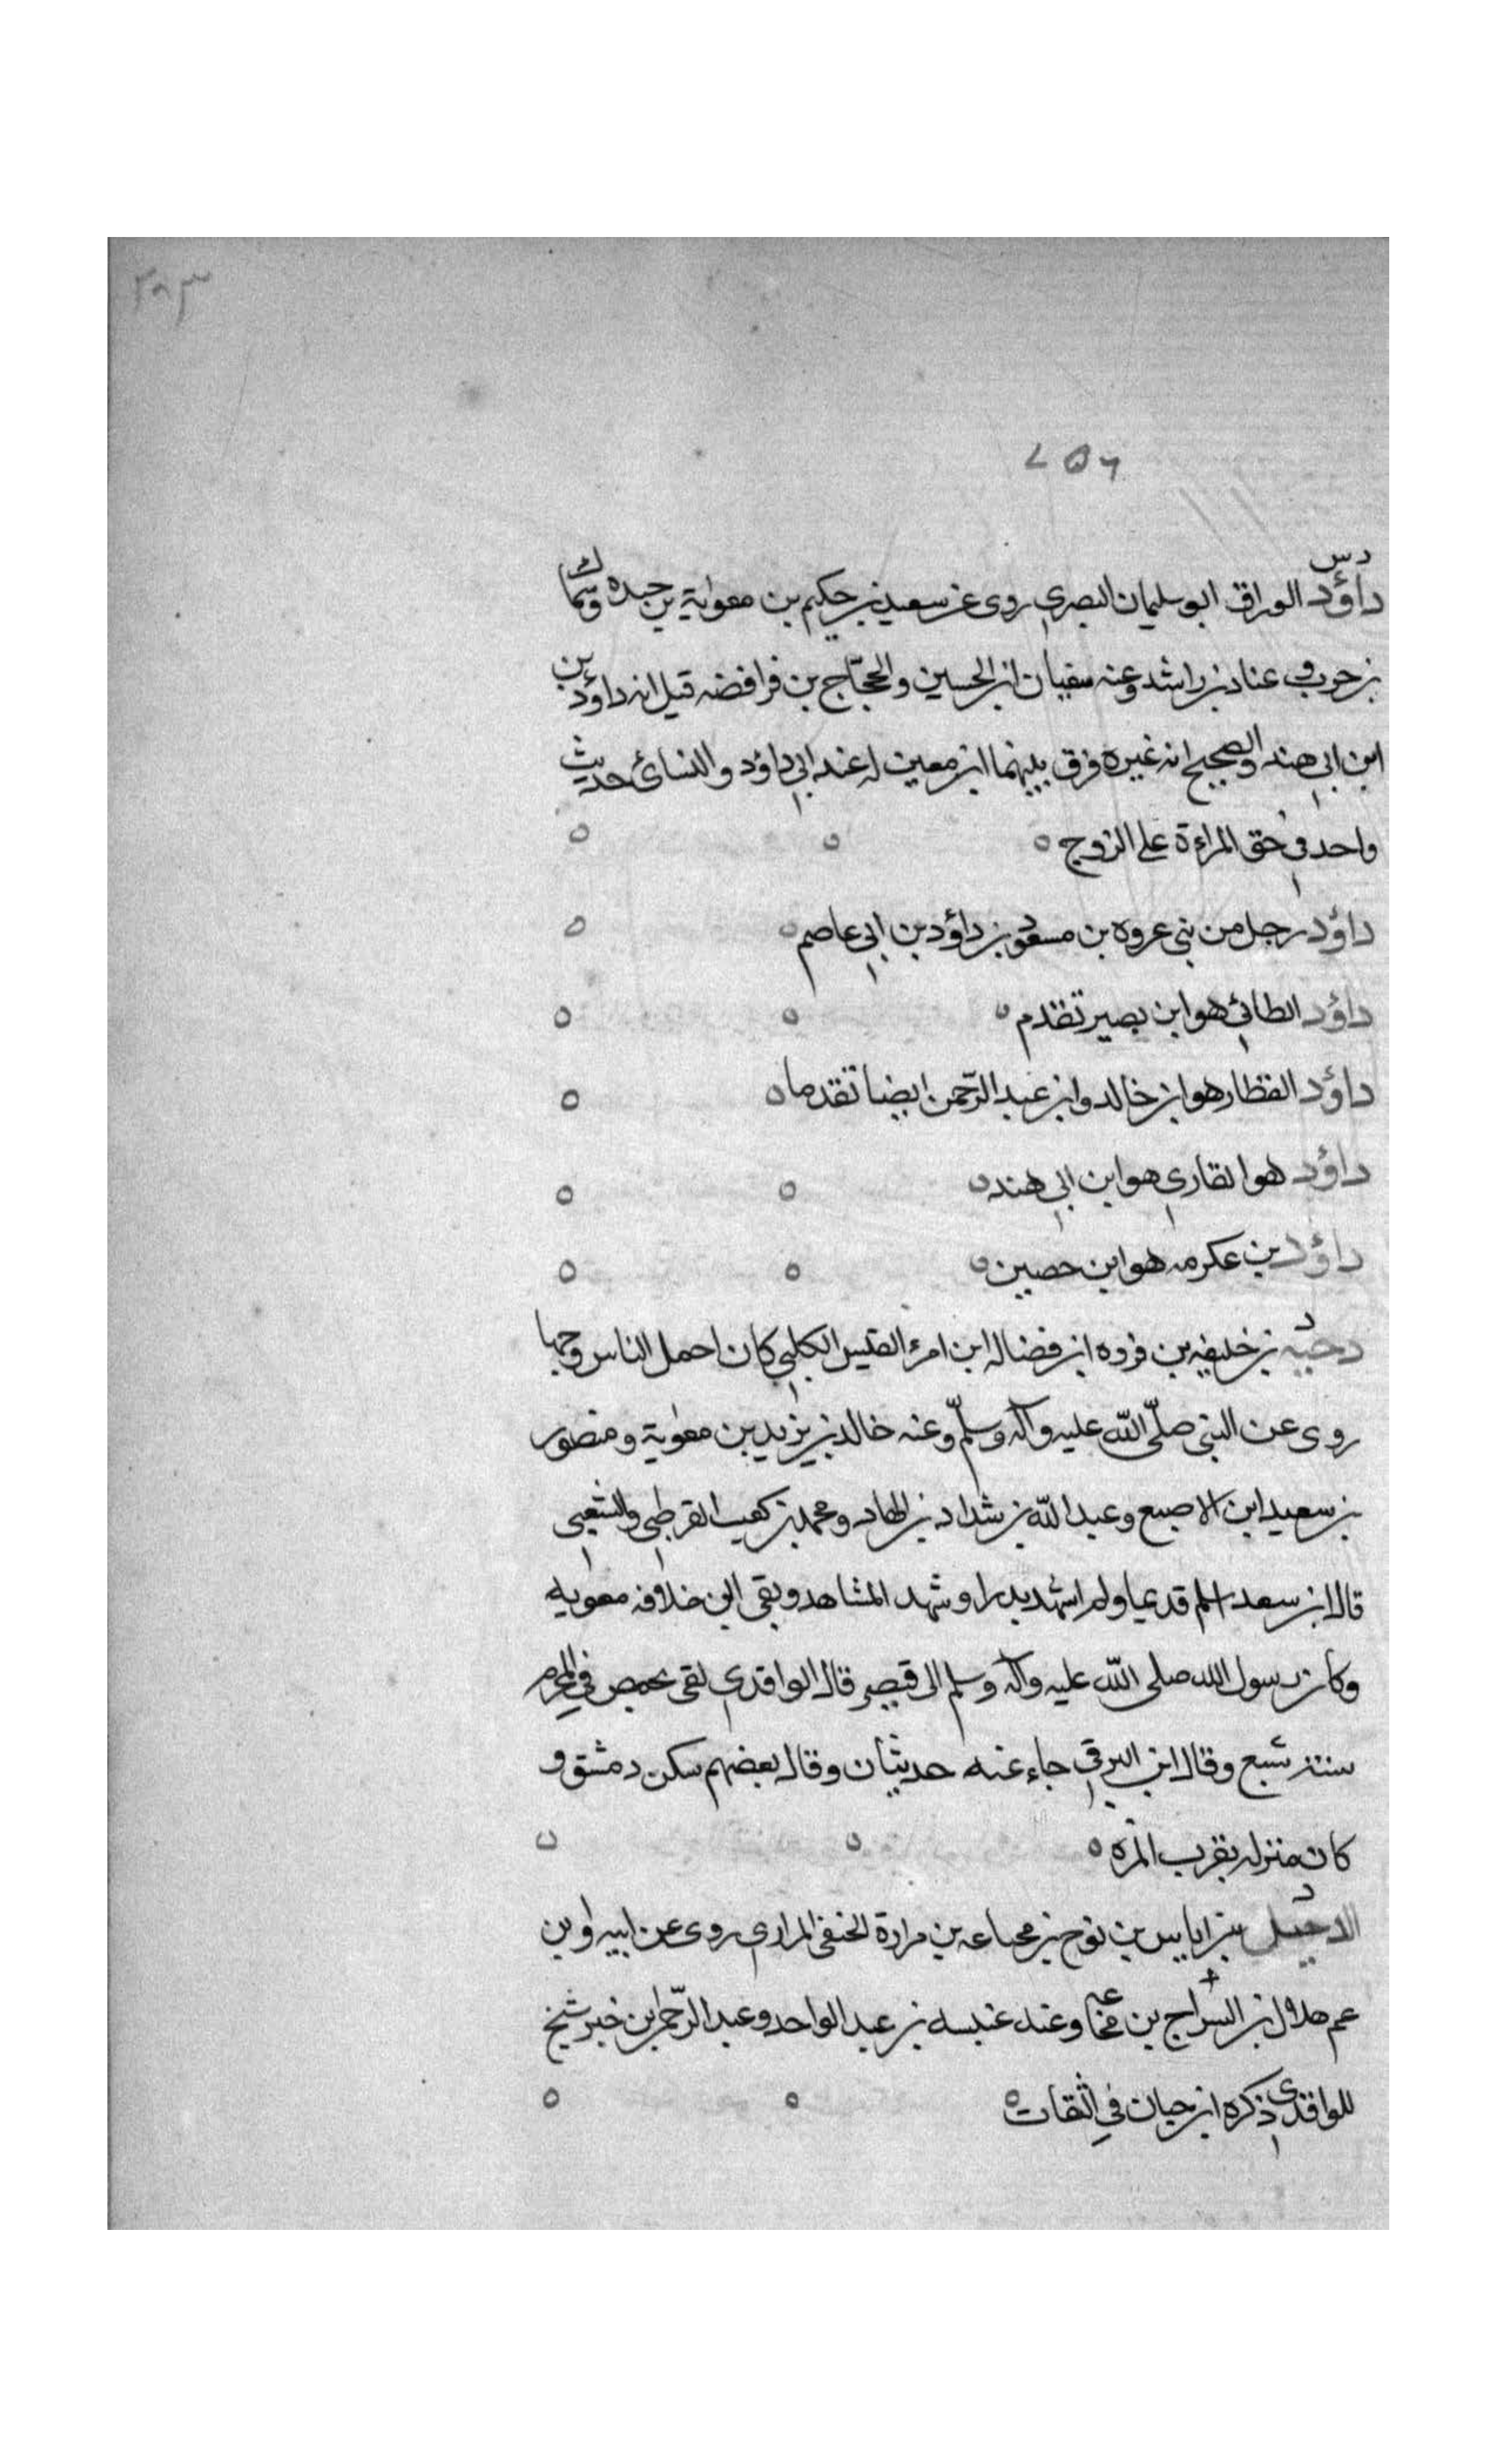 ٢٠٣
٧٥٦
د س
داؤد الوراق ابو سليمان البصري روى عن سعيد بن حكيم بن معوية بن حيده وسماك
بن حرب وعنه سفيان ابن الحسين والحجاج بن فرافضه قيل انه داؤد بن
ابن ابي هند والصحيح انه غيره فرق بينهما ابن معين له عند ابي داؤد والنسائ حديث
واحد في حق المراءة على الزوج
داؤد رجل من بني عروه بن مسعود بن داؤد بن ابي عاصم
داؤد الطائي هو ابن بصير تقدم
داؤد القطار هو ابن خالد وابن عبد الرحمن ايضا تقدما
داؤد هو القاري هو ابن ابي هند
داؤد بن عكرمه هو ابن حصين
د
دحيه بن خليفه بن فروه ابن فضاله ابن امرء القيس الكلبي كان احمل الناس وجها
روى عن النبي صلّى اللّه عليه وآله وسلّم وعنه خالد بن يزيد بن معوية ومنصور
بن سعيد ابن الاصبع وعبد اللّه بن شداد بن الهاد ومحمد بن كعب القرظي والشعبي
قال ابن سعد اسلم قديما ولم اشهد بدرا وشهد المشاهد وبقي الى خلافه معويه
وكان رسول الله صلى اللّه عليه وآله وسلم الى قيصر قال الواقدي لقى بحمص في المحرم
سنة سبع وقال ابن البرقي جاء عنه حديثان وقال بعضهم سكن دمشق و
كان منزله بقرب المزه
د
الدخيل بن اياس بن نوح بن مجاعه بن مرارة الحنفي المرادي روى عن ابيه وابن
عم هلال بن السراج بن مجاعه وعنه عنبسه بن عبد الواحد وعبد الرّحمن ابن خبر شيخ
للواقدي ذكره ابن حبان في الثقات